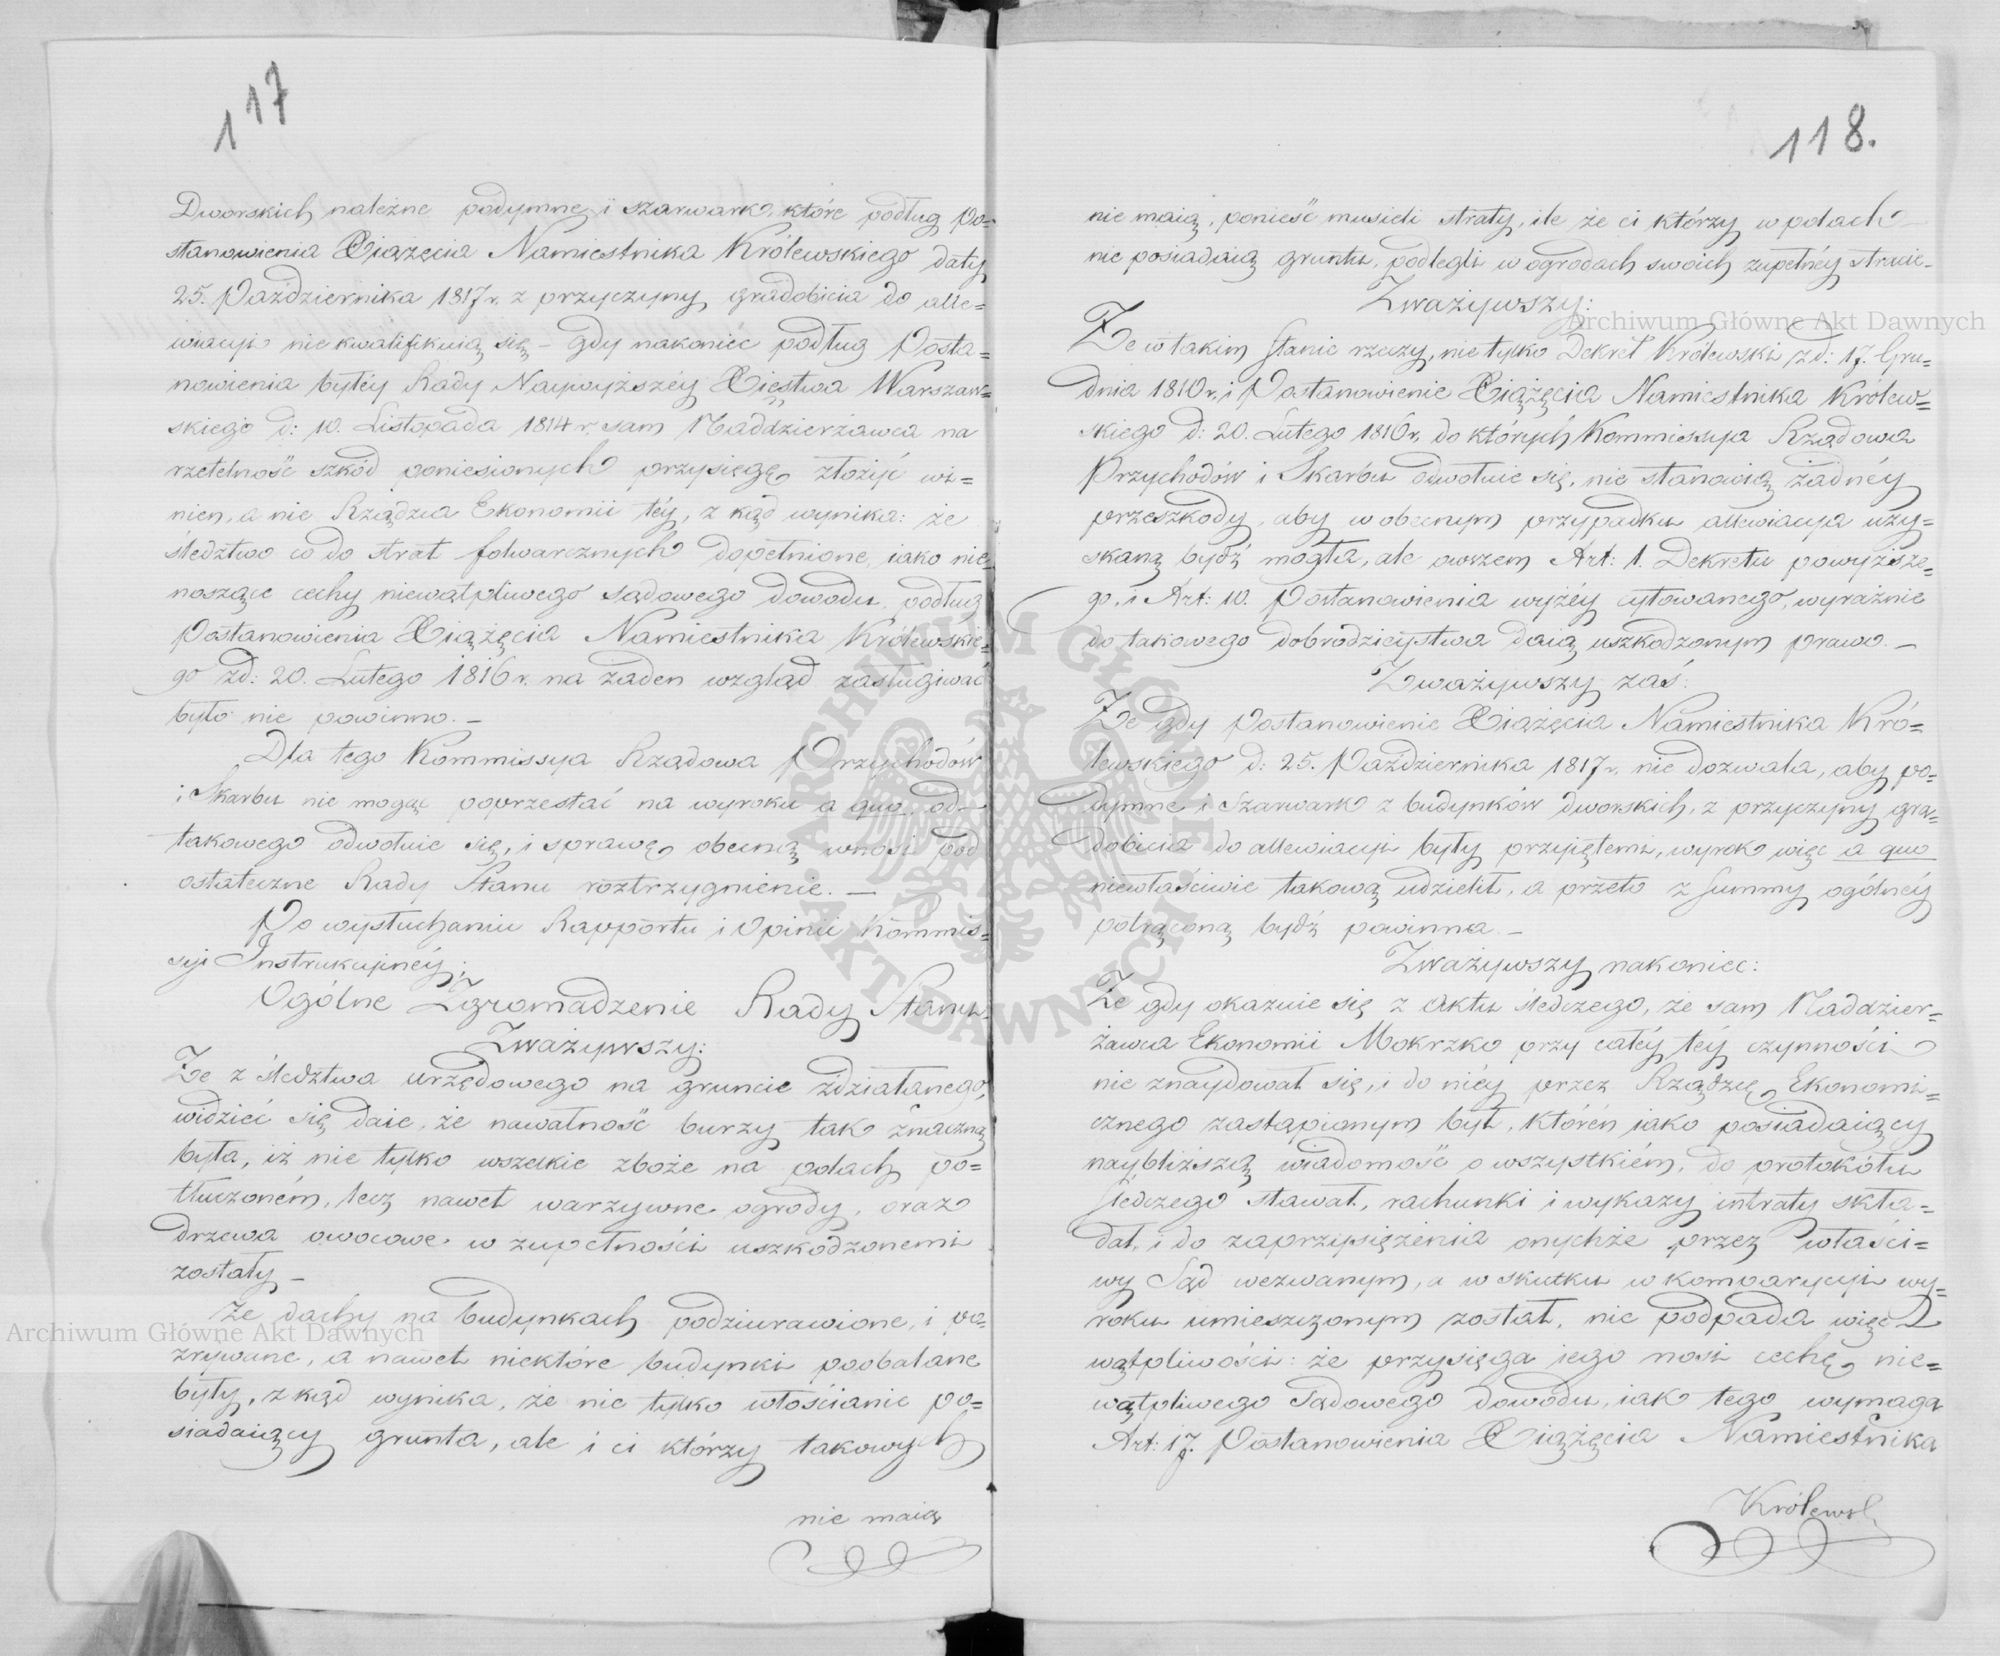 117
Dworskich należne podymne i szarwark, które podług Po=
stanowienia Xiążęcia Namiestnika Królewskiego daty
25. Października 1817 r. z przyczyny gradobicia do alle=
wiacyi nie kwalifikuią się – gdy nakoniec podług Posta=
nowienia byłéy Rady Naywyższéy Xięstwa Warszaw=
skiego d: 10. Listopada 1814 r. sam Naddzierżawca na
rzetelność szkód poniesionych przysięgę złożyć wi=
nien, a nie Rządzca Ekonomii téy, z kąd wynika: że
śledztwo co do strat folwarcznych dopełnione, iako nie=
noszące cechy niewątpliwego sądowego dowodu, podług
Postanowienia Xiążęcia Namiestnika Królewskie=
go z d: 20. Lutego 1816 r. na żaden wzgląd zasługiwać
było nie powinno. –
Dla tego Kommissya Rządowa Przychodów
i Skarbu nie mogąc poprzestać na wyroku a quo, od
takowego odwołuie się, i sprawę obecną wnosi pod
ostateczne Rady Stanu roztrzygnienie. –
Po wysłuchaniu Rapportu i Opinii Kommis=
syi Instrukcyinéy;
Ogólne Zgromadzenie Rady Stanu.
Zważywszy:
Że z śledztwa urzędowego na gruncie zdziałanego,
widzieć się daie, że nawałność burzy tak znaczną
była, iż nie tylko wszelkie zboże na polach po=
tłuczoném, lecz nawet warzywne ogrody, oraz
drzewa owocowe w zupełności uszkodzonemi
zostały –
Że dachy na budynkach podziurawione, i po=
zrywane, a nawet niektóre budynki poobalane
były, z kąd wynika, że nie tylko włościanie po=
siadaiący grunta, ale i ci którzy takowych
nie maią
118.
nie maią, ponieść musieli straty, ile że ci którzy w polach
nie posiadaią gruntu, podlegli w ogrodach swoich zupełnéy stracie.
Zważywszy:
Że w takim stanie rzeczy, nie tylko Dekret Królewski z d: 17. Gru=
dnia 1810 r. i Postanowienie Xiążęcia Namiestnika Królew=
skiego d: 20. Lutego 1816 r. do których Kommissya Rządowa
Przychodów i Skarbu odwołuie się, nie stanowią żadnéy
przeszkody, aby w obecnym przypadku allewiacya uzy=
skaną bydź mogła, ale owszem Art: 1. Dekretu powyższe=
go, i Art: 10. Postanowienia wyżéy cytowanego, wyraźnie
do takowego dobrodzieystwa daią uszkodzonym prawo. –
Zważywszy zaś:
Że gdy Postanowienie Xiążęcia Namiestnika Kró=
lewskiego d: 25. Października 1817 r. nie dozwala, aby po=
dymne i Szarwark z budynków dworskich, z przyczyny gra=
dobicia do allewiacyi były przyiętemi, wyrok więc a quo
niewłaściwie takową udzielił, a przeto z summy ogólnéy
potrąconą bydź powinna. –
Zważywszy nakoniec:
Że gdy okazuie się z Aktu śledczego, że sam Naddzier=
żawca Ekonomii Mokrzko przy całéy téy czynności
nie znaydował się, i do niéy przez Rządzcę Ekonomi=
cznego zastąpionym był, którén iako posiadaiący
naybliższą wiadomość o wszystkiém, do protokółu
śledczego stawał, rachunki i wykazy intraty skła=
dał, i do zaprzysiężenia onychże przez właści=
wy Sąd wezwanym, a w skutku w komparycyi wy=
roku umieszczonym został, nie podpada więc
wątpliwości: że przysięga iego nosi cechę nie=
wątpliwego sądowego dowodu, iak tego wymaga
Art: 17. Postanowienia Xiążęcia Namiestnika
Królewsk
Archiwum Główne Akt Dawnych
Archiwum Główne Akt Dawnych
ARCHIWUM GŁÓWNE · AKT DAWNYCH ·